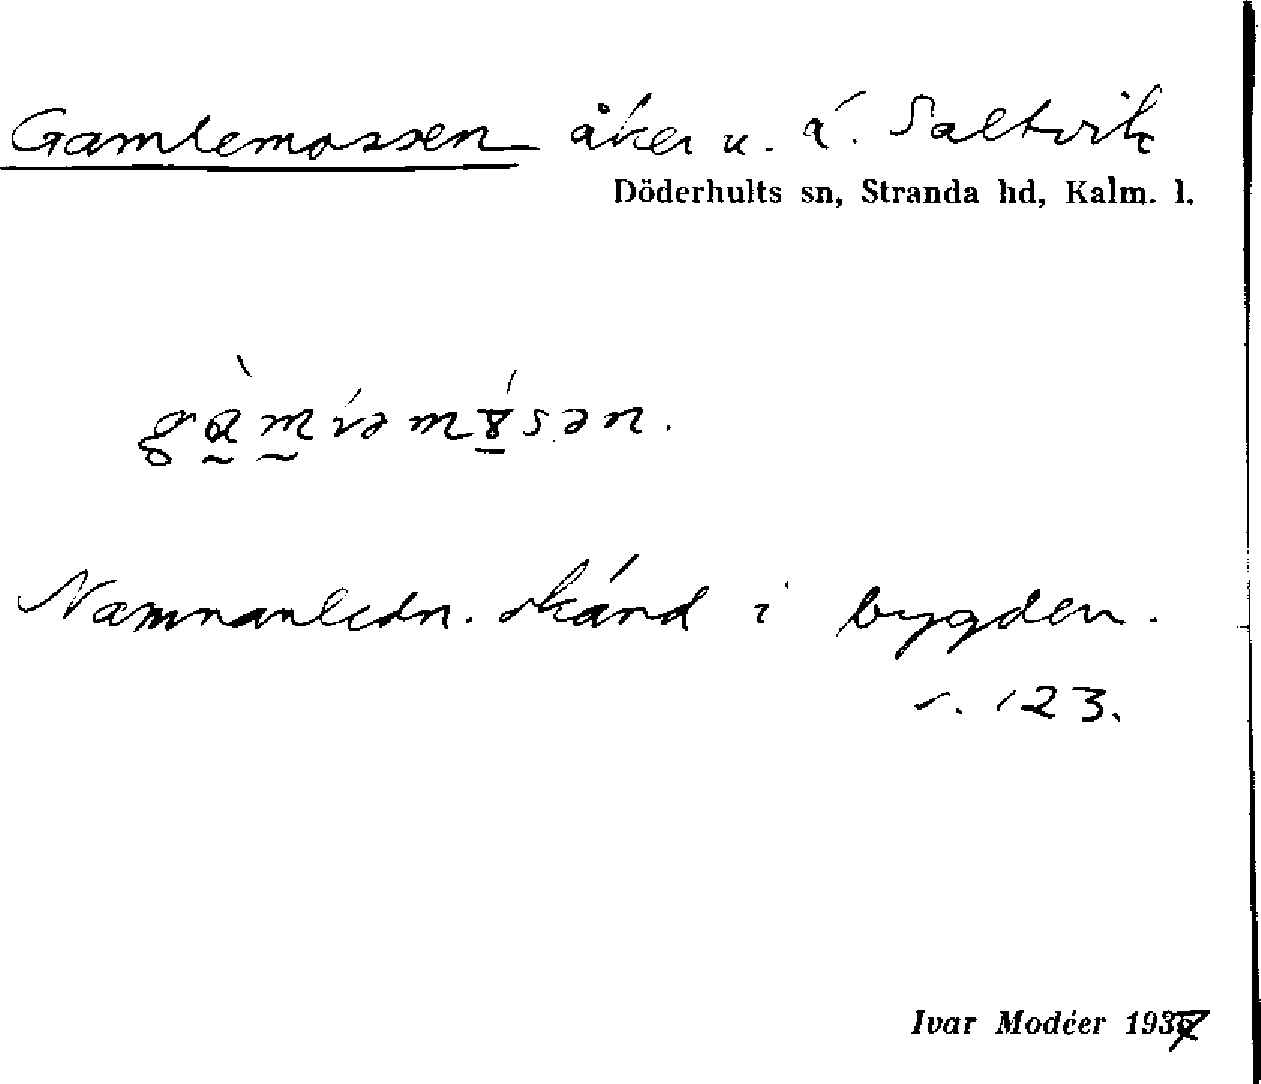 Gamlemossen åker u. Saltvik
Döderhults sn, Stranda hd, Kalm. l.
Namnanledn. okänd i bygden.
s. 123.
Ivar Modéer 1937